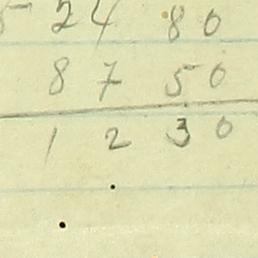 5 24 80
87 50
12 30